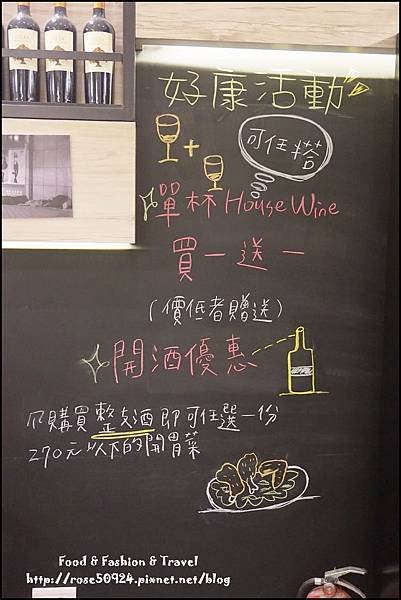 好康活動
可任搭
單杯 House Wine
買一送一
(價低者贈送)
開酒優惠
凡購買整支酒即可任選一份
270元以下的開胃菜
Food & Fashion & Travel
http://rose50924.pixnet.net/blog